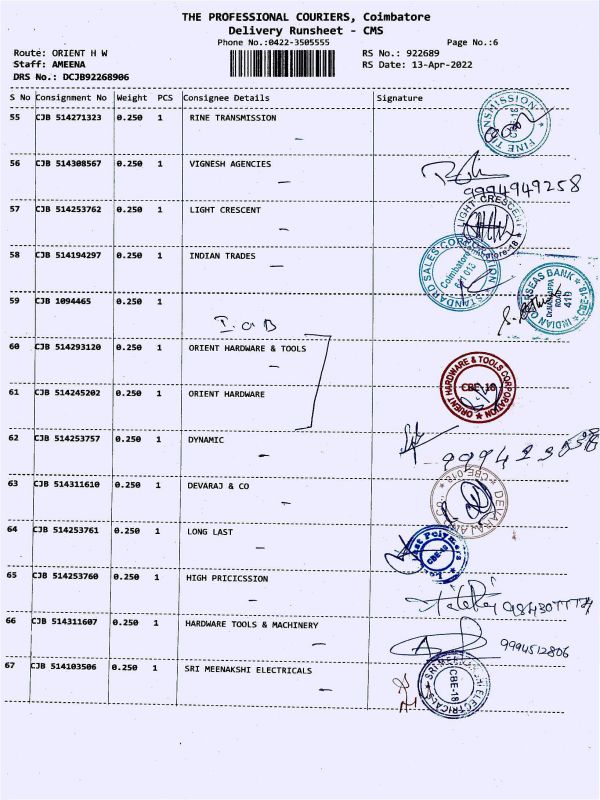 THE PROFESSIONAL COURIERS, Coimbatore
Delivery Runsheet - CMS
Phone No.:0422-3505555 Page No.:6
Route: ORIENT H W RS No.: 922689
Staff: AMEENA RS Date: 13-Apr-2022
DRS No.: DCJB92268906
S No Consignment No Weight PCS Consignee Details Signature
55 CJB 514271323 0.250 1 RINE TRANSMISSION
FINE TRANSMISSION CBE-18
56 CJB 514308567 0.250 1 VIGNESH AGENCIES
9994949258
57 CJB 514253762 0.250 1 LIGHT CRESCENT
LIGHT CRESCENT Coimbatore-18
58 CJB 514194297 0.250 1 INDIAN TRADES
STANDARD SALES CORPORATION Coimbatore 641 018
INDIAN OVERSEAS BANK
59 CJB 1094465 0.250 1
I O B
60 CJB 514293120 0.250 1 ORIENT HARDWARE & TOOLS
ORIENT HARDWARE & TOOLS CORPORATION CBE-18
61 CJB 514245202 0.250 1 ORIENT HARDWARE
62 CJB 514253757 0.250 1 DYNAMIC
63 CJB 514311610 0.250 1 DEVARAJ & CO
DEVARAJ AND CO CBE-018
64 CJB 514253761 0.250 1 LONG LAST
Last Polymers CBE-18
65 CJB 514253760 0.250 1 HIGH PRICICSSION
66 CJB 514311607 0.250 1 HARDWARE TOOLS & MACHINERY
9994512806
67 CJB 514103506 0.250 1 SRI MEENAKSHI ELECTRICALS
SRI MEENAKSHI ELECTRICALS CBE-18